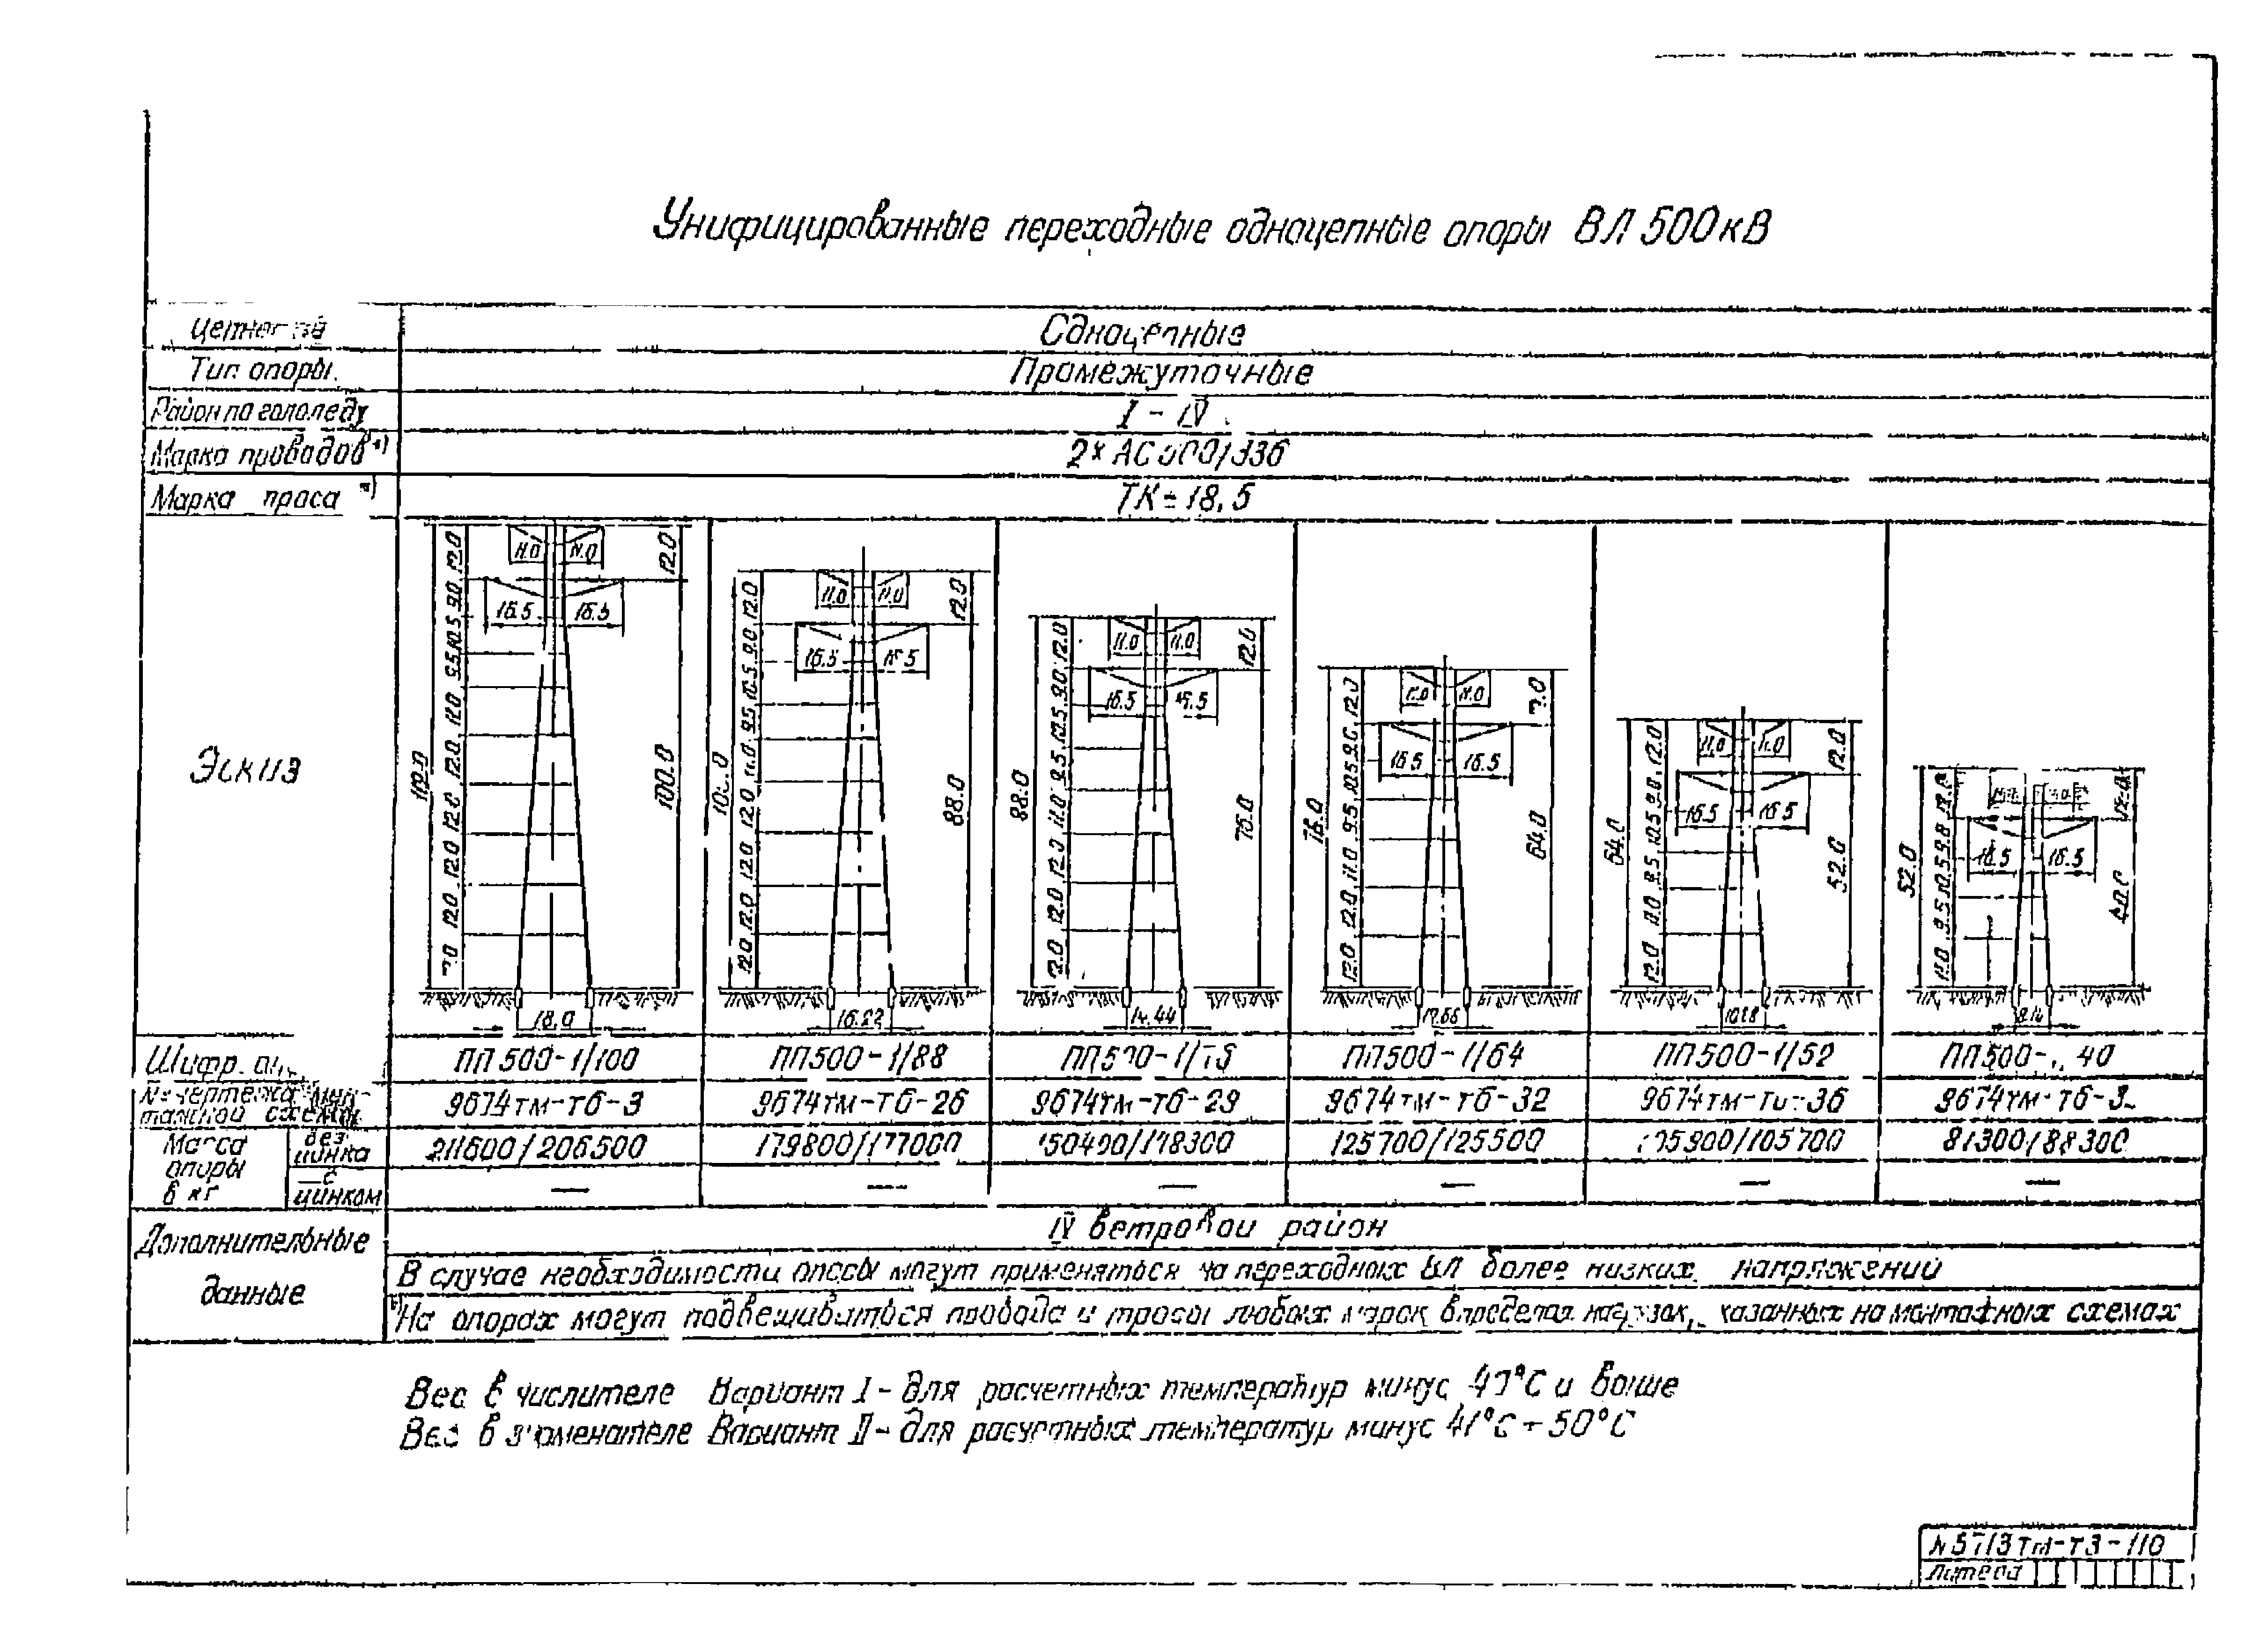 Унифицированные переходные одноцепные опоры ВЛ 500кВ
Одноцепные
Тип опоры.
Промежуточные
Район по гололеду
I - IV
Марка проводов
2×АС
Марка троса
ТК = 18,5
Эскиз
12.0 11.0 11.0 12.0
9.0 16.5 16.5
10.5
9.5
12.0
12.0
12.0
12.0
12.0
7.0
100.0
18.0
12.0 11.0 11.0 12.0
9.0 16.5
10.5
9.5
11.0
12.0
12.0
12.0
12.0
88.0
16.22
12.0 11.0 11.0 12.0
9.0 16.5
10.5
9.5
11.0
12.0
12.0
12.0
88.0
76.0
14.44
12.0
16.5 16.5
10.5
9.5
11.0
12.0
12.0
76.0
64.0
12.66
12.0 11.0 11.0 12.0
9.0 16.5 16.5
10.5
9.5
11.0
12.0
64.0
52.0
10.88
16.5 16.5
10.5
9.5
11.0
52.0
40.0
Шифр
ПП500-1/100
ПП500-1/88
ПП500-1/64
ПП500-1/52
№ чертежа монтажной схемы
9674тм-т6-3
9674тм-т6-26
9674тм-т6-29
9674тм-т6-32
9674тм-т6-36
Масса опоры в кг
без цинка
211600/206500
179800/177000
125700/125500
81300/88300
с цинком
— — — — — —
Дополнительные данные
IV ветровой район
В случае необходимости опоры могут применяться на переходных ВЛ более низких напряжений
На опорах могут подвешиваться провода и тросы любых марок в пределах нагрузок, на монтажных схемах
Вес в числителе Вариант I - для расчетных температур минус 40°С и выше
Вес в знаменателе Вариант II - для расчетных температур минус 41°С ÷ 50°С
№5713тм-т3-110
Литера